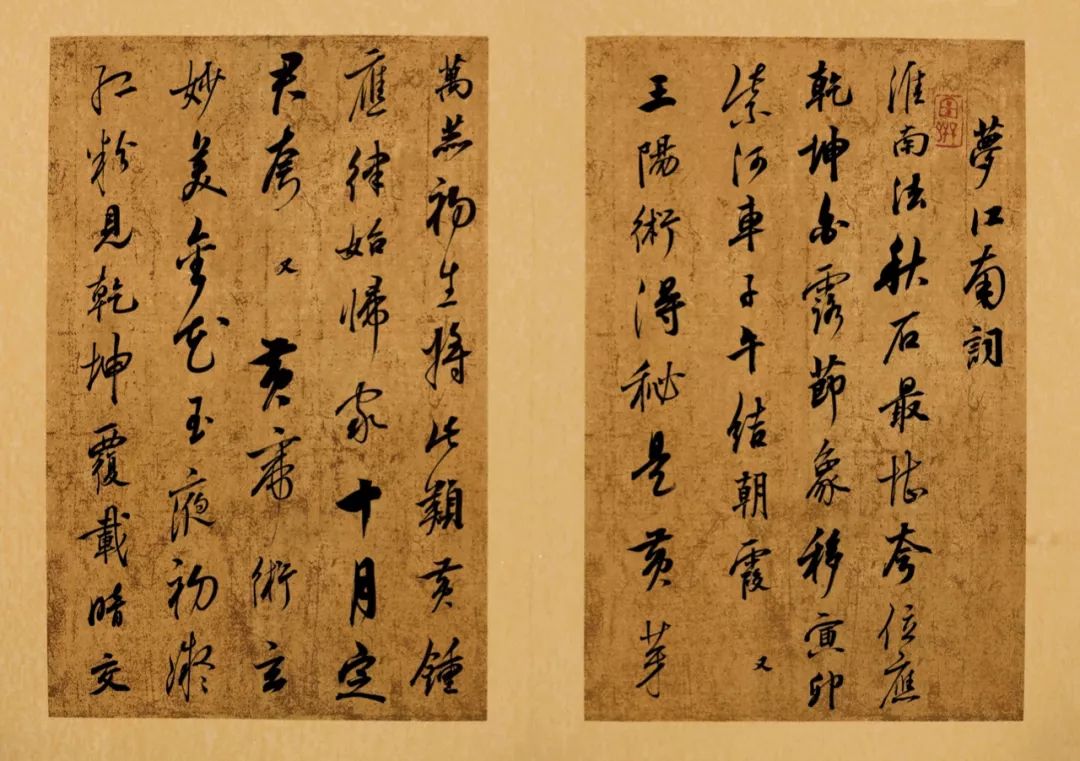 夢江南詞
淮南法秋石最堪夸位應
乾坤白露節象移寅卯
紫河車子午結朝霞 又
王陽術得秘是黃芽
萬蕊初生將此類黃鍾
應律始歸家十月定
君夸 又 黃帝術玄
妙美金花玉液初凝
紅粉見乾坤覆載暗交